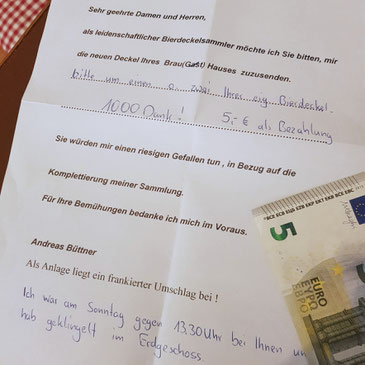 Sehr geehrte Damen und Herren,
als leidenschaftlicher Bierdeckelsammler möchte ich Sie bitten, mir
die neuen Deckel Ihres Brau(Gast) Hauses zuzusenden.
bitte um einen o. zwei Ihrer eig. Bierdeckel.
1000 Dank! 5,- € als Bezahlung
Sie würden mir einen riesigen Gefallen tun , in Bezug auf die
Komplettierung meiner Sammlung.
Für Ihre Bemühungen bedanke ich mich im Voraus.
Andreas Büttner
Als Anlage liegt ein frankierter Umschlag bei !
Ich war am Sonntag gegen 13.30 Uhr bei Ihnen un
hab geklingelt im Erdgeschoss
5
EURO